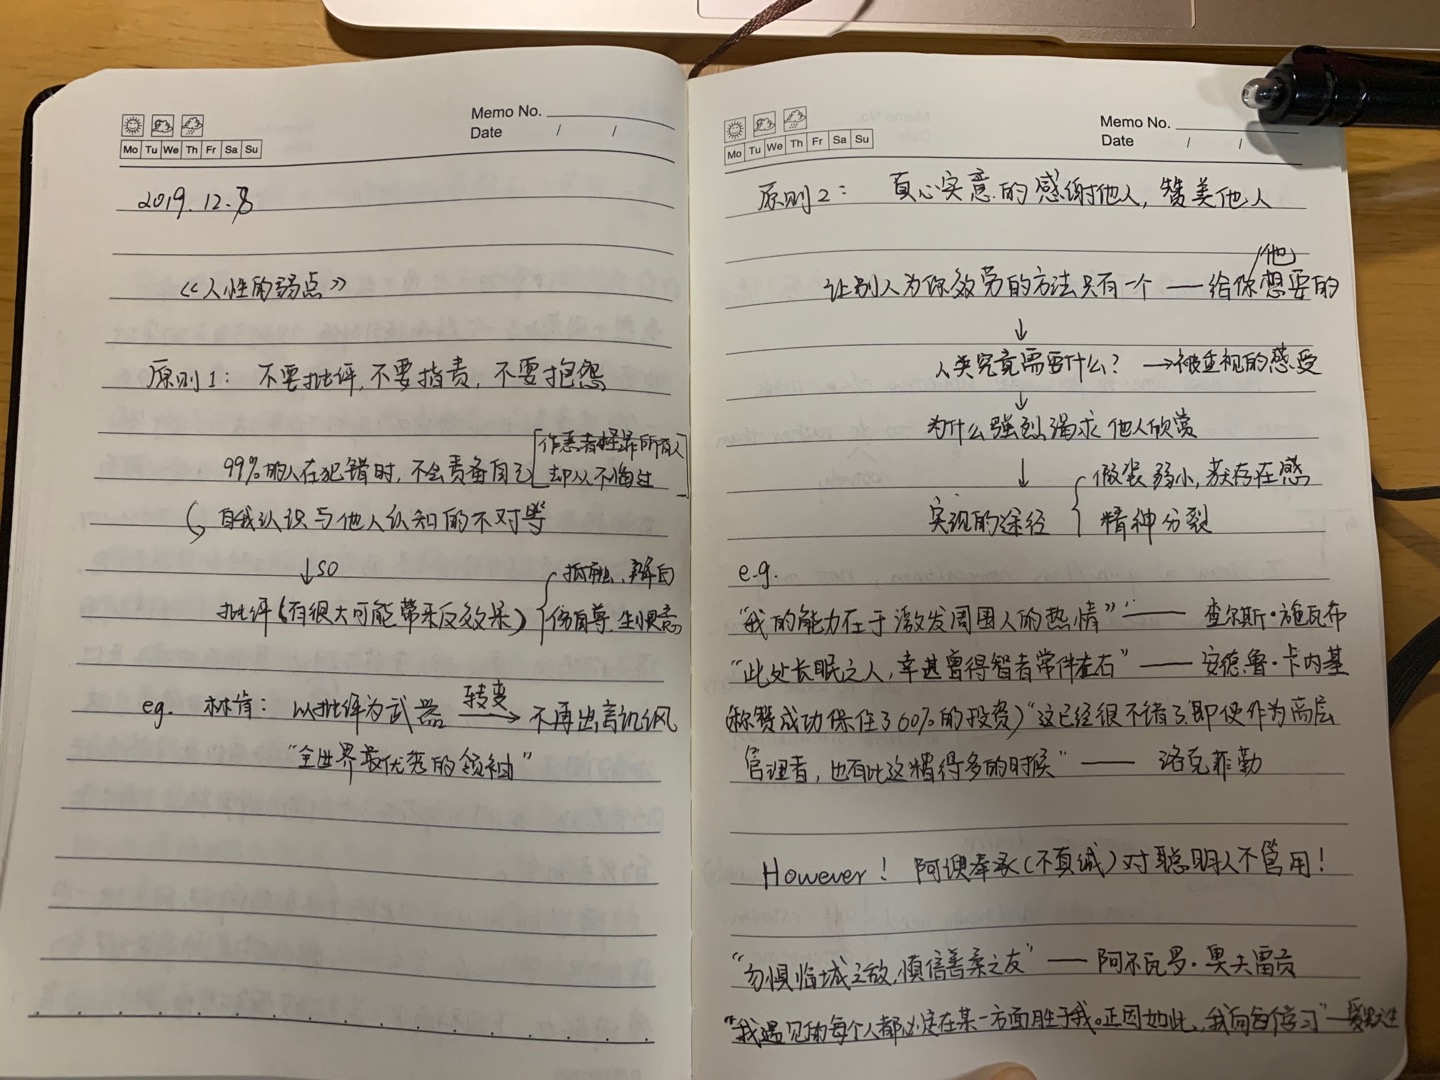 Memo No.
Date / /
Mo Tu We Th Fr Sa Su
2019.12.8
《人性的弱点》
原则1: 不要批评,不要指责,不要抱怨
99%的人在犯错时,不会责备自己 [作恶者怪罪所有人
却从不悔过]
自我认识与他人认知的不对等
↓so
批评(有很大可能带来反效果) { 抵触、辩白
伤自尊、生恨意
eg. 林肯: 以批评为武器 转变→ 不再出言讥讽
"全世界最优秀的领袖"
Memo No.
Date / /
Mo Tu We Th Fr Sa Su
原则2: 真心实意的感谢他人,赞美他人
他
让别人为你效劳的方法只有一个 —— 给你想要的
↓
人类究竟需要什么? →被重视的感受
↓
为什么强烈渴求他人欣赏
↓
实现的途径 { 假装弱小,获存在感
精神分裂
e.g.
"我的能力在于激发周围人的热情" —— 查尔斯·施瓦布
"此处长眠之人,幸甚曾得智者常伴左右" —— 安德鲁·卡内基
(称赞成功保住了60%的投资)"这已经很不错了,即使作为高层
管理者,也有比这糟得多的时候" —— 洛克菲勒
However! 阿谀奉承(不真诚)对聪明人不管用!
"勿惧临城之敌,慎信善柔之友" —— 阿尔瓦罗·奥夫雷贡
"我遇见的每个人都必定在某一方面胜于我。正因如此,我向每个学习" —爱默生